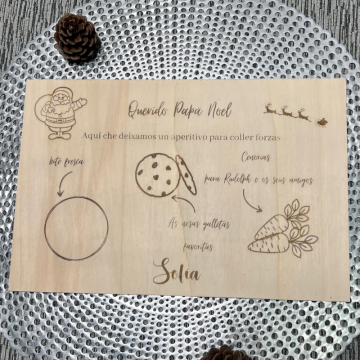 Querido Papa Noel
Aquí che deixamos un aperitivo para coller forzas
leite fresca
Cenorias
para Rudolph e os seus amigos
As nosas galletas
favoritas
Sofía